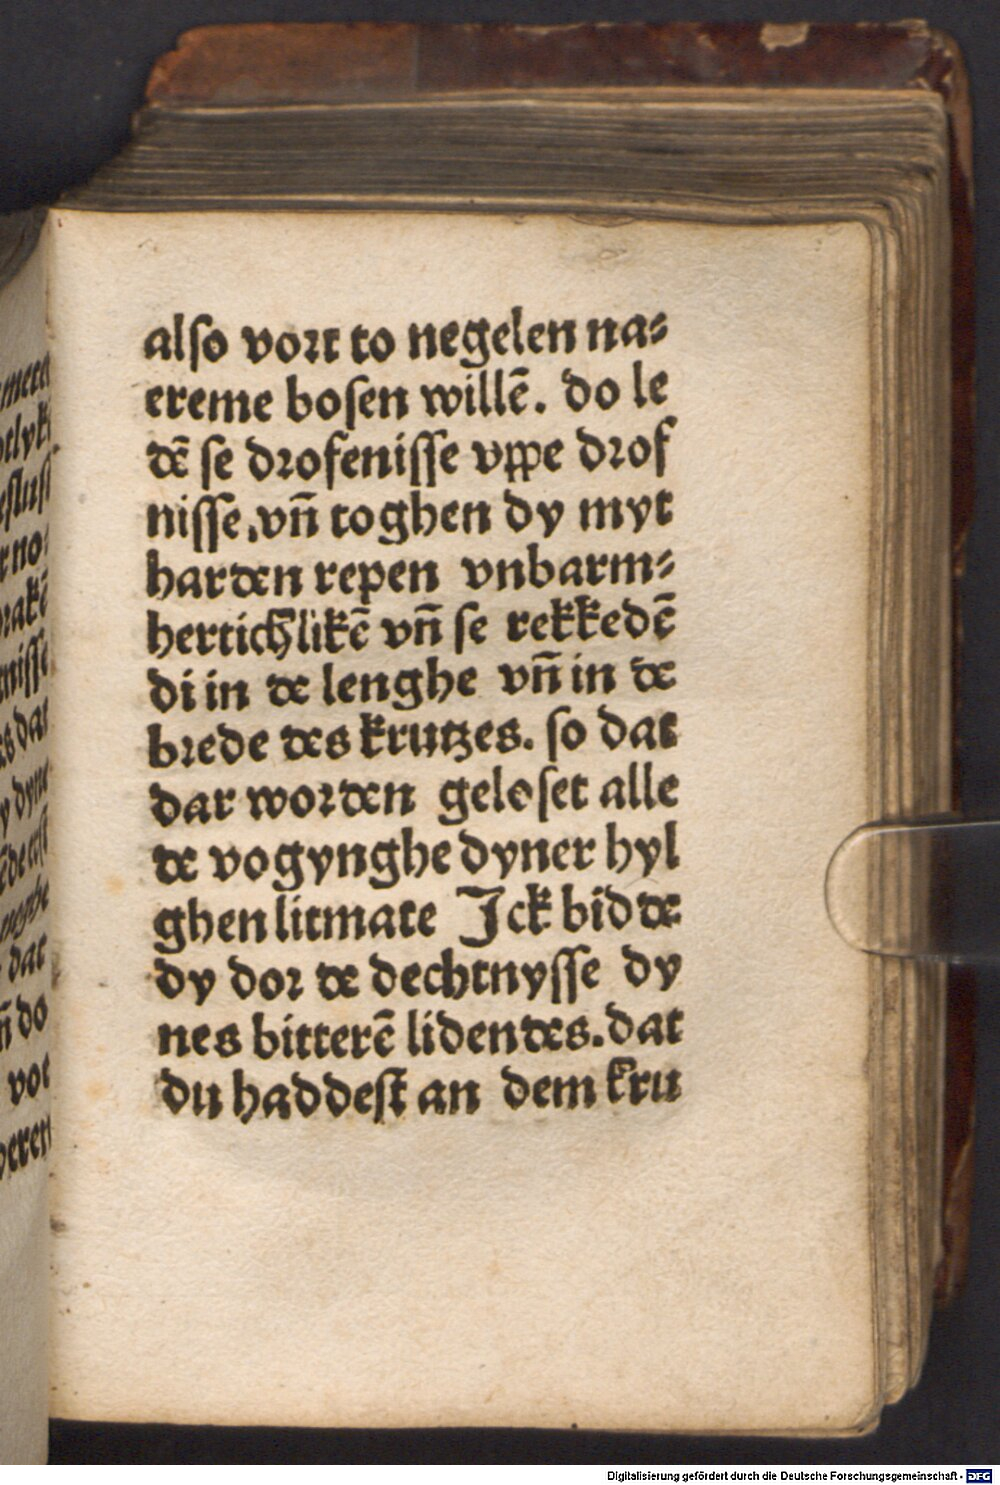 also vort to negelen na⸗
ereme bosen willē. do le
dē se drofenisse vppe drof
nisse.vn̄ toghen dy myt
harden repen vnbarm⸗
hertichlikē vn̄ se rekkedē
di in de lenghe vn̄ in de
brede des krutzes. so dat
dar worden geloset alle
de vogynghe dyner hyl
ghen litmate Jck bidde
dy dor de dechtnysse dy
nes bitterē lidendes.dat
du haddest an dem kru
Digitalisierung gefördert durch die Deutsche Forschungsgemeinschaft - DFG